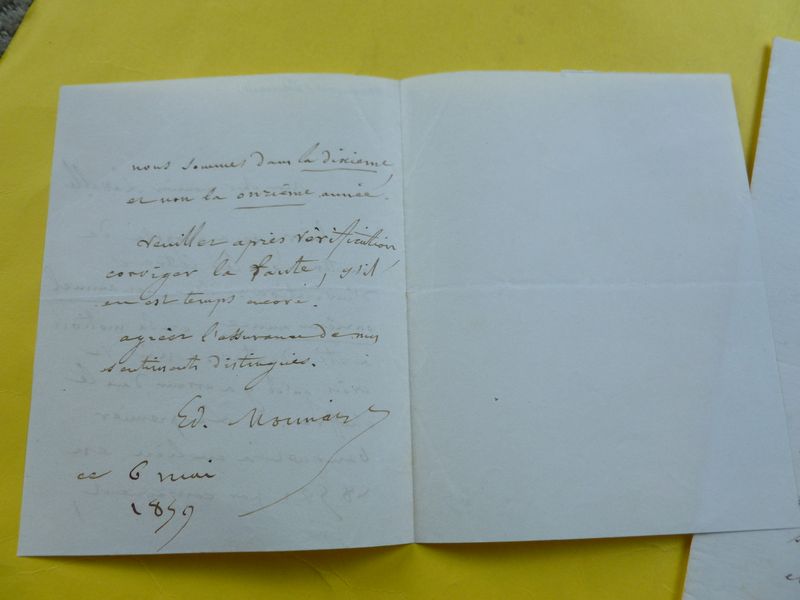 nous sommes dans la dixième,
et non la onzième année.
Veuillez après vérification,
corriger la faute, s'il
en est temps encore.
agréer l'assurance de mes
sentiments distingués.
Ed.
ce 6 mai
1859